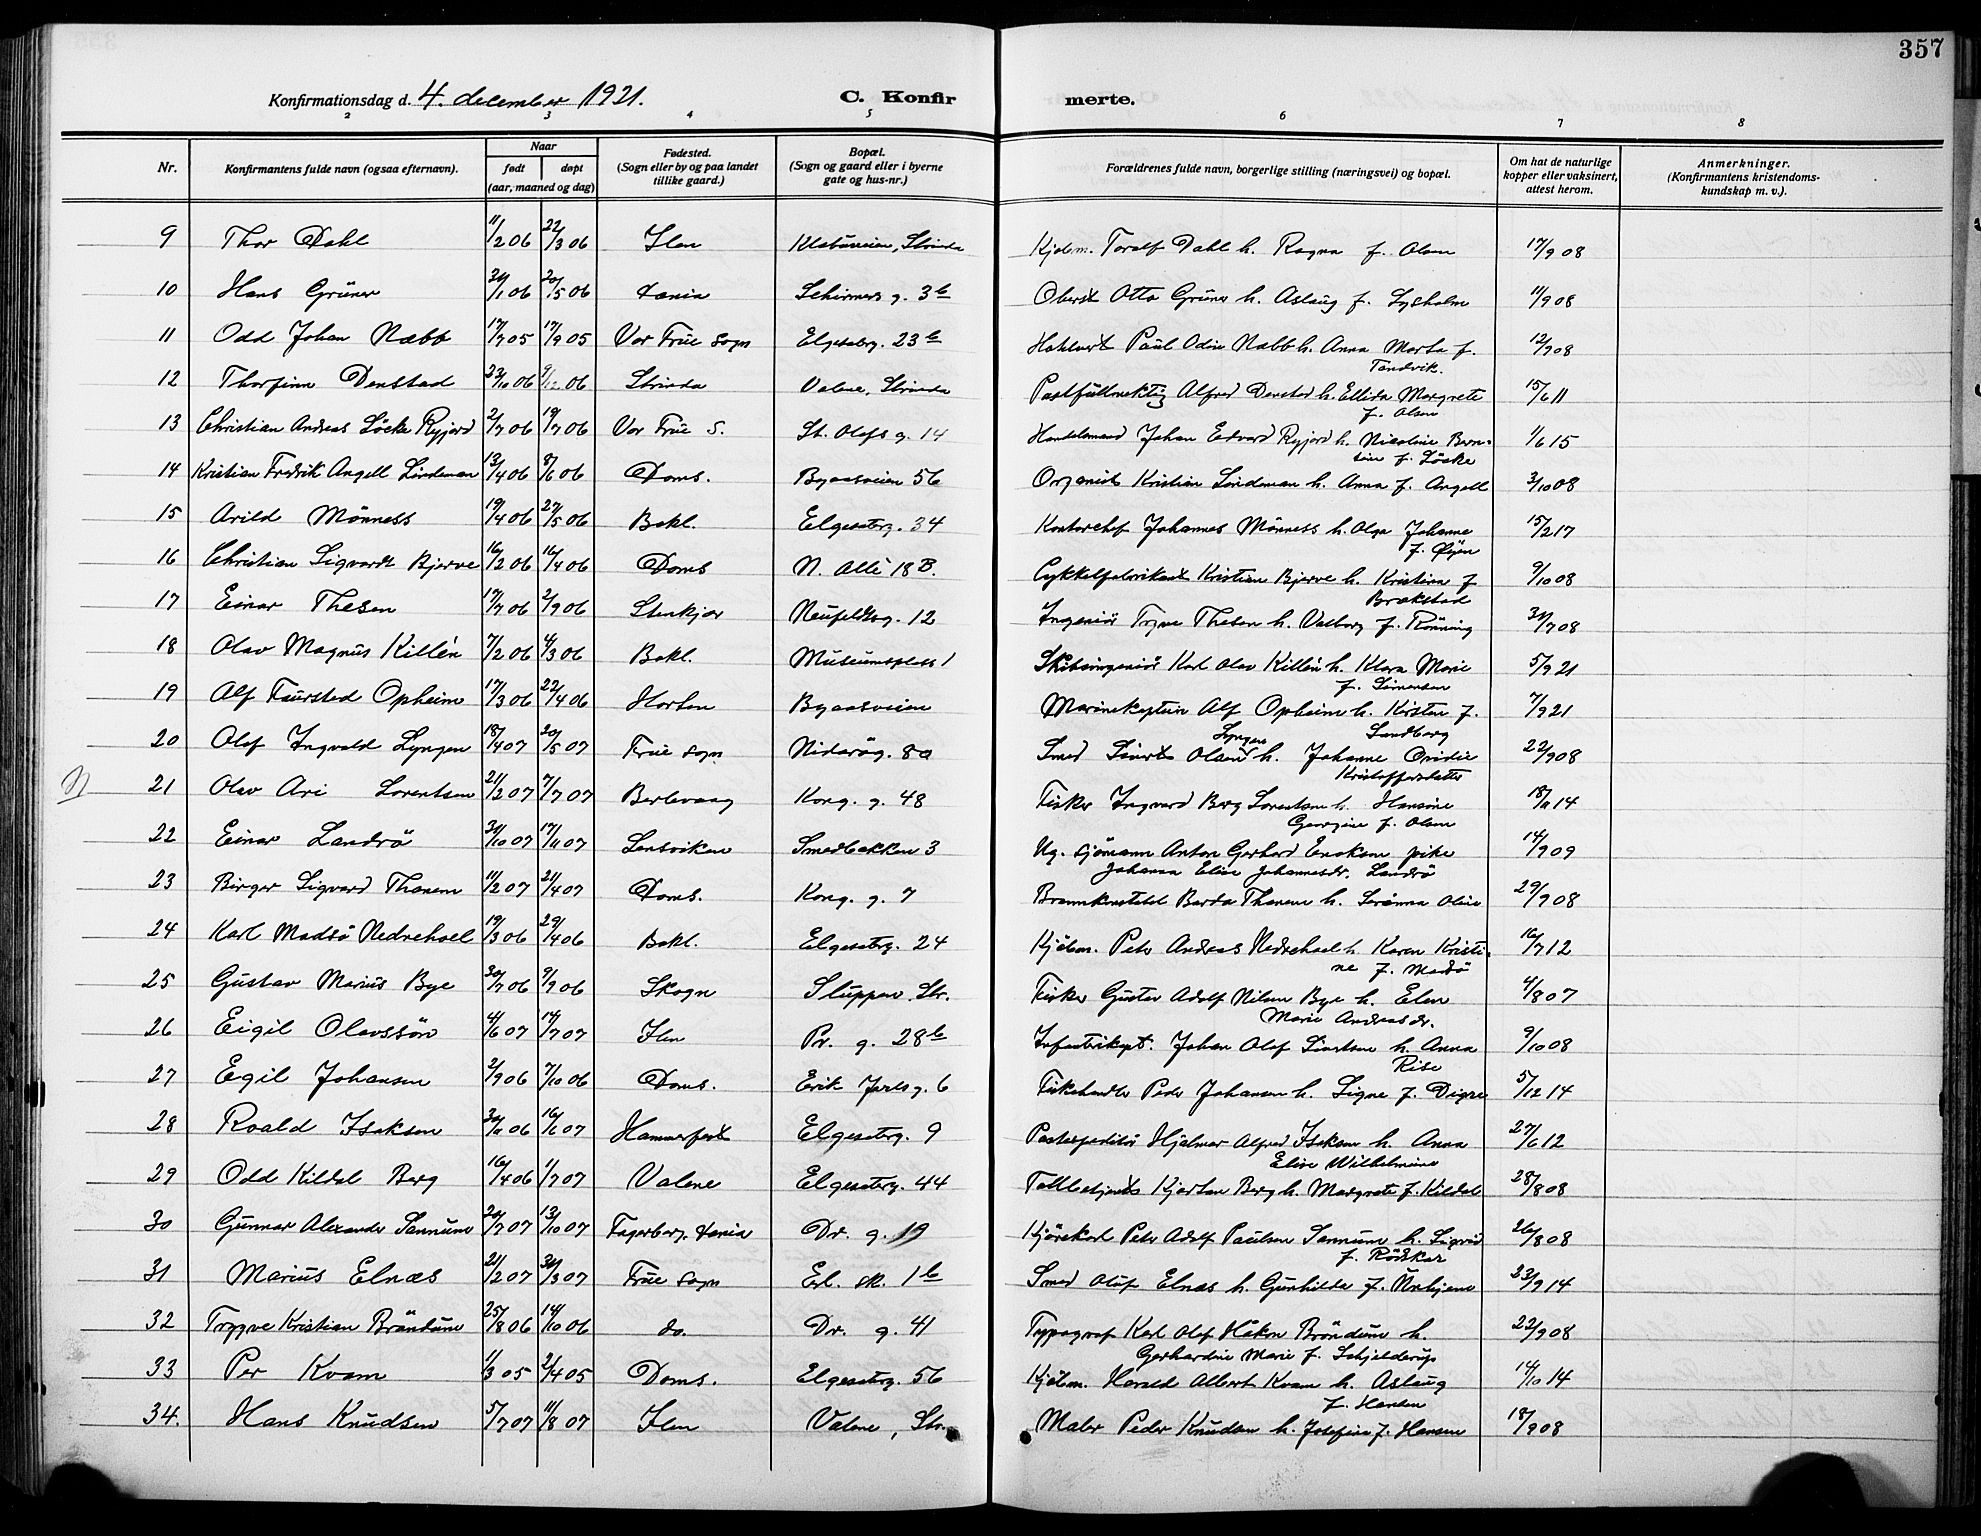 357
Konfirmationsdag d. 4. december 1921.
C. Konfir
merte.
2 3 4 5 6 7 8
Nr.
Konfirmantens fulde navn (ogsaa efternavn).
Naar
født
døpt
(aar, maaned og dag)
Fødested.
(Sogn eller by og paa landet
tillike gaard.)
Bopæl.
(Sogn og gaard eller i byerne
gate og hus-nr.)
Forældrenes fulde navn, borgerlige stilling (næringsvei) og bopæl.
Om hat de naturlige
kopper eller vaksinert,
attest herom.
Anmerkninger.
(Konfirmantens kristendoms-
kundskap m. v.).
9 Thor Dahl 11/2 06 22/3 06 Ilen Klæbuveien, Strinda Kjøbm. Toralf Dahl h. Ragna f. Olsen 17/9 08
10 Hans Grüner 31/1 06 20/5 06 Xania Schirmers g. 3b Oberst Otto Grüner h. Aslaug f. Lysholm 11/9 08
11 Odd Johan Næbb 17/7 05 17/9 05 Vor Frue Sogn Elgeseterg. 23b Hotelvert Paul Odin Næbb h. Anna Marta f.
Tandvik. 12/9 08
12 Thorfinn Denstad 23/10 06 9/12 06 Strinda Valene, Strinda Postfuldmektig Alfred Denstad h. Ellida Margrete
f. Olsen 15/6 11
13 Christian Andreas Löcke Ryjord 2/7 06 19/7 06 Vor Frue S. St. Olafs g. 14 Handelsmand Johan Edvard Ryjord h. Nicoline Bern-
tine f. Löcke 1/6 15
14 Kristian Fredrik Angell Lindeman 13/4 06 8/6 06 Doms. Byaasveien 56 Organist Kristian Lindeman h. Anna f. Angell 3/10 08
15 Arild Mönness 19/4 06 27/5 06 Bakl. Elgeseterg. 34 Kontorchef Johannes Mönness h. Olga Johanne
f. Öyen 15/2 17
16 Christian Sigvardt Bjerve 16/2 06 16/4 06 Doms N. Allé 18 B. Cykkelfabrikant Kristian Bjerve h. Kristina f.
Brækstad 9/10 08
17 Einar Thesen 17/7 06 2/9 06 Stenkjær Neufeldtsg. 12 Ingeniör Trygve Thesen h. Valborg f. Rönning 31/7 08
18 Olav Magnus Killén 7/2 06 4/3 06 Bakl. Museumsplass 1 Skibsingeniör Karl Olav Killén h. Klara Marie
f. Simensen 5/9 21
19 Alf Faursted Opheim 17/3 06 22/4 06 Horten Byaasveien Marinekaptein Alf Opheim h. Kirsten f.
Sandberg 7/9 21
20 Olaf Ingvald Lyngen 18/4 07 20/5 07 Frue Sogn Nidarög. 8a Smed Sivert Olsen Lyngen h. Johanne Ovidie
Kristoffersdatter 22/9 08
N 21 Olav Ari Lorentsen 21/2 07 7/7 07 Berlevaag Kong. g. 48 Fisker Ingvard Berg Lorentsen h. Hansine
Georgine f. Olsen 18/11 14
22 Einar Landrö 30/10 07 17/11 07 Lensviken Smedbakken 3 Ug. sjömann Anton Gerhard Enoksen pike
Johanna Elise Johannesdr. Landrö 14/9 09
23 Birger Sigvard Thanem 11/2 07 21/4 07 Doms. Kong. g. 7 Brannkonstabel Bardo Thanem h. Serianna Oline 29/9 08
24 Karl Madsö Nedrehoel 19/3 06 29/4 06 Bakl. Elgesetrg. 24 Kjöbm. Peter Andreas Nedrehoel h. Karen Kristi-
ne f. Madsö 16/7 12
25 Gustav Marius Bye 30/7 06 9/9 06 Skogn Sluppen Str. Fisker Gustav Adolf Nilsen Bye h. Elen
Marie Andreasdr. 4/8 07
26 Eigil Olavssön 4/6 07 14/7 07 Ilen Pr. g. 28b Infanterikapt. Johan Olaf Sivertsen h. Anna
Rise 9/10 08
27 Egil Johansen 2/9 06 7/10 06 Doms. Erik Jarlsg. 6 Fiskehandler Peder Johansen h. Signe f. Digre 5/12 14
28 Roald Isaksen 30/11 06 16/6 07 Hammerfest Elgesetrg. 9 Postexpeditör Hjalmar Alfred Isaksen h. Anna
Elise Wilhelmine 27/6 12
29 Odd Kildal Berg 16/4 06 1/7 07 Valene Elgesetrg. 44 Tollbetjent Kjartan Berg h. Margrete f. Kildal 28/8 08
30 Gunnar Alexander Sannum 20/7 07 13/10 07 Fagerborg. Xania Dr. g. 19 Kjörekarl Peter Adolf Paulsen Sannum h. Sigrid
f. Rödskar 26/8 08
31 Marius Elnæs 21/2 07 31/3 07 Frue Sogn Erl. sk. 1b Smed Oluf Elnæs h. Gunhilda f. Unhjem 23/9 14
32 Trygve Kristian Bröndum 25/8 06 14/10 06 do. Dr. g. 41 Typograf Karl Olaf Håkon Bröndum h.
Gerhardine Marie f. Schjelderup 22/9 08
33 Per Kvam 1/3 05 2/4 05 Doms. Elgesetrg. 56 Kjöbm. Harald Albert Kvam h. Aslaug
f. Hansen 14/10 14
34. Hans Knudsen 5/7 07 11/8 07 Ilen Valene, Str. Maler Peder Knudsen h. Josefine f. Hansen 18/9 08